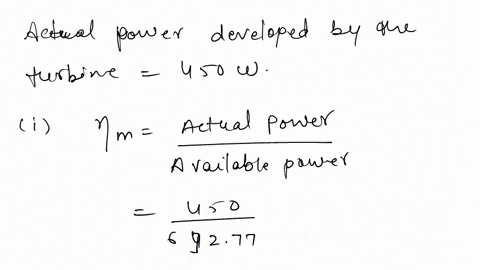 Actual power developed by the
turbine = 450 w.
(i) ηm = Actual power
Available power
= 450
692.77